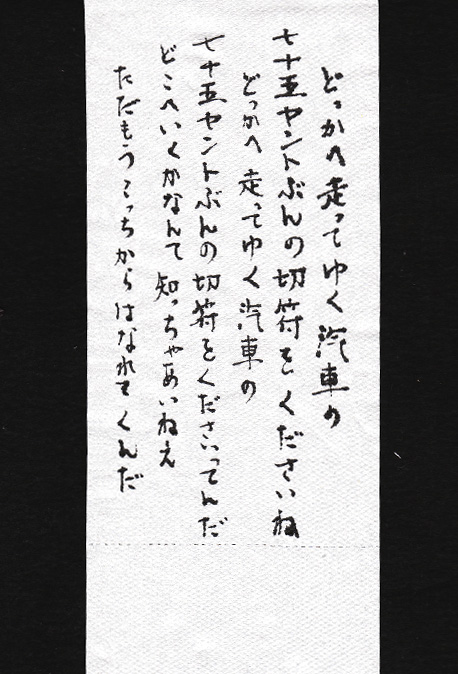 どっかへ走ってゆく汽車の
七十五セントぶんの切符をくださいね
どっかへ走ってゆく汽車の
七十五セントぶんの切符をくださいってんだ
どこへいくかなんて知っちゃあいねえ
ただもうこっちからはなれてくんだ